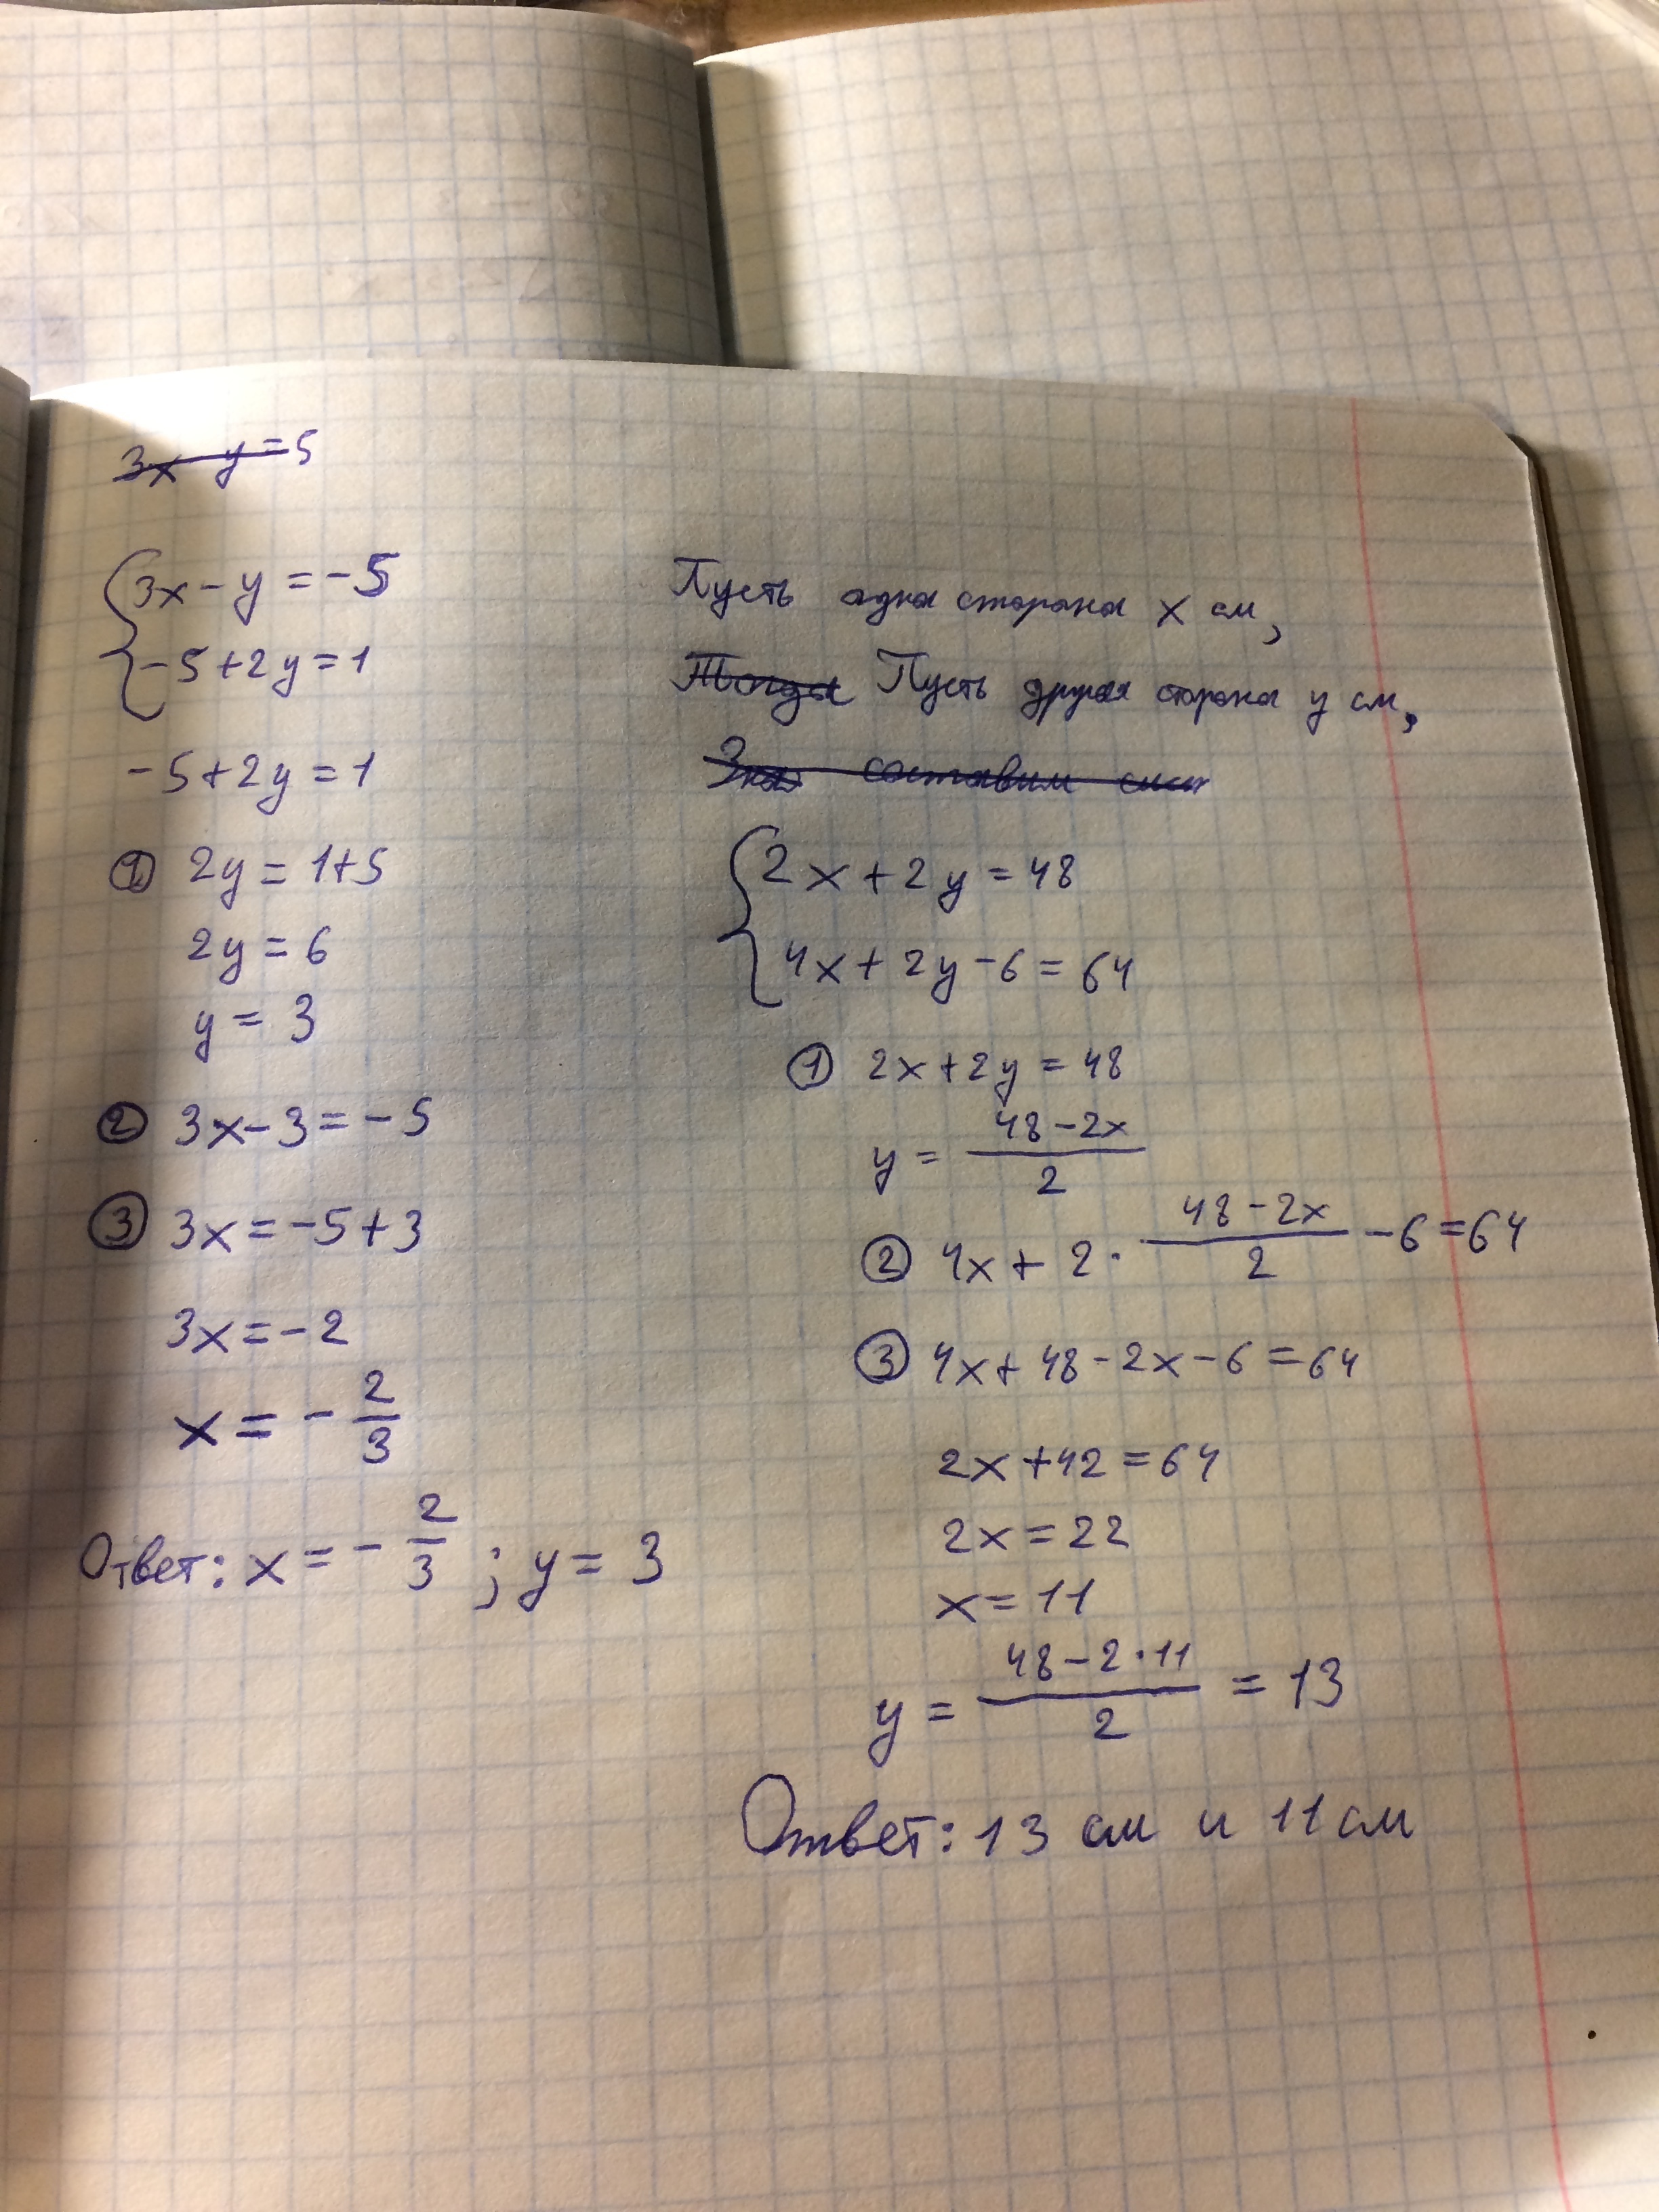 3x y=5
3x-y=-5
-5+2y=1
-5+2y=1
① 2y=1+5
2y=6
y=3
② 3x-3=-5
③ 3x=-5+3
3x=-2
x=-2/3
Ответ: x=-2/3; y=3
Пусть одна сторона x см,
Тогда Пусть другая сторона y см,
составим сист
2x+2y=48
4x+2y-6=64
① 2x+2y=48
y=(48-2x)/2
② 4x+2·(48-2x)/2-6=64
③ 4x+48-2x-6=64
2x+42=64
2x=22
x=11
y=(48-2·11)/2=13
Ответ: 13 см и 11 см